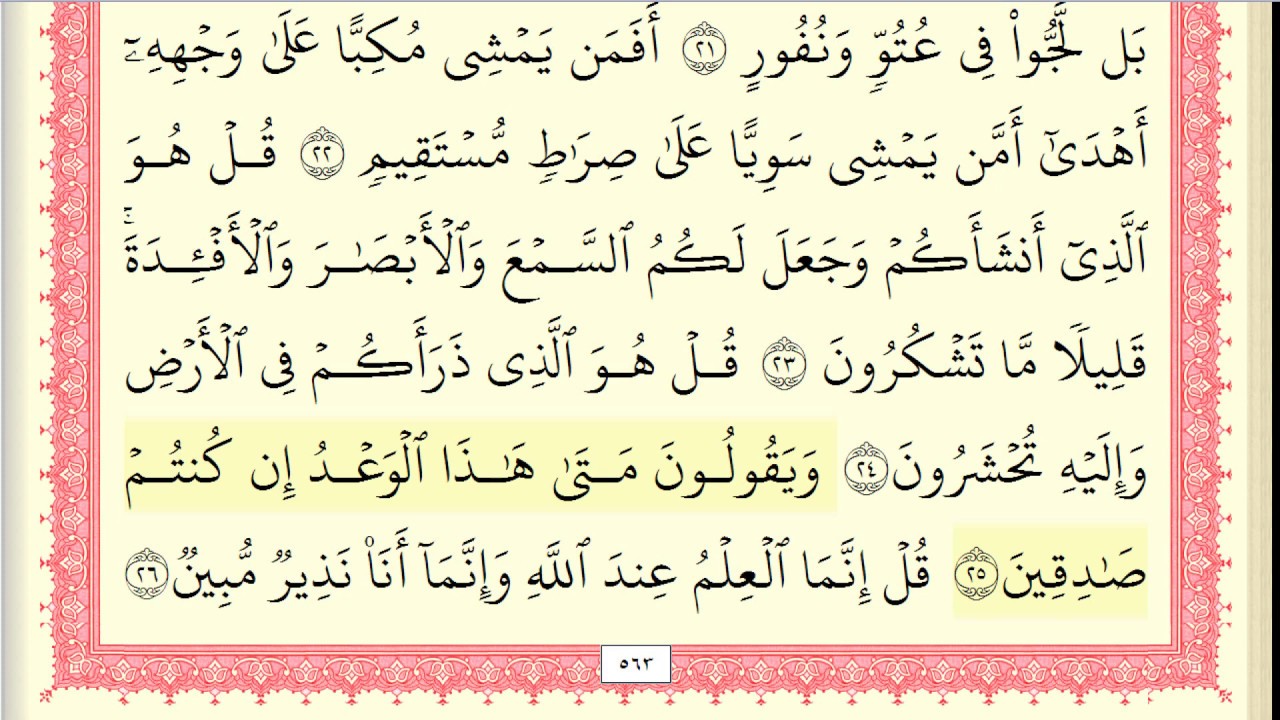 بَل لَّجُّوا۟ فِى عُتُوٍّۢ وَنُفُورٍ ٢١ أَفَمَن يَمْشِى مُكِبًّا عَلَىٰ وَجْهِهِۦٓ
أَهْدَىٰٓ أَمَّن يَمْشِى سَوِيًّا عَلَىٰ صِرَٰطٍۢ مُّسْتَقِيمٍۢ ٢٢ قُلْ هُوَ
ٱلَّذِىٓ أَنشَأَكُمْ وَجَعَلَ لَكُمُ ٱلسَّمْعَ وَٱلْأَبْصَـٰرَ وَٱلْأَفْـِٔدَةَ ۖ
قَلِيلًۭا مَّا تَشْكُرُونَ ٢٣ قُلْ هُوَ ٱلَّذِى ذَرَأَكُمْ فِى ٱلْأَرْضِ
وَإِلَيْهِ تُحْشَرُونَ ٢٤ وَيَقُولُونَ مَتَىٰ هَـٰذَا ٱلْوَعْدُ إِن كُنتُمْ
صَـٰدِقِينَ ٢٥ قُلْ إِنَّمَا ٱلْعِلْمُ عِندَ ٱللَّهِ وَإِنَّمَآ أَنَا۠ نَذِيرٌۭ مُّبِينٌۭ ٢٦
٥٦٣